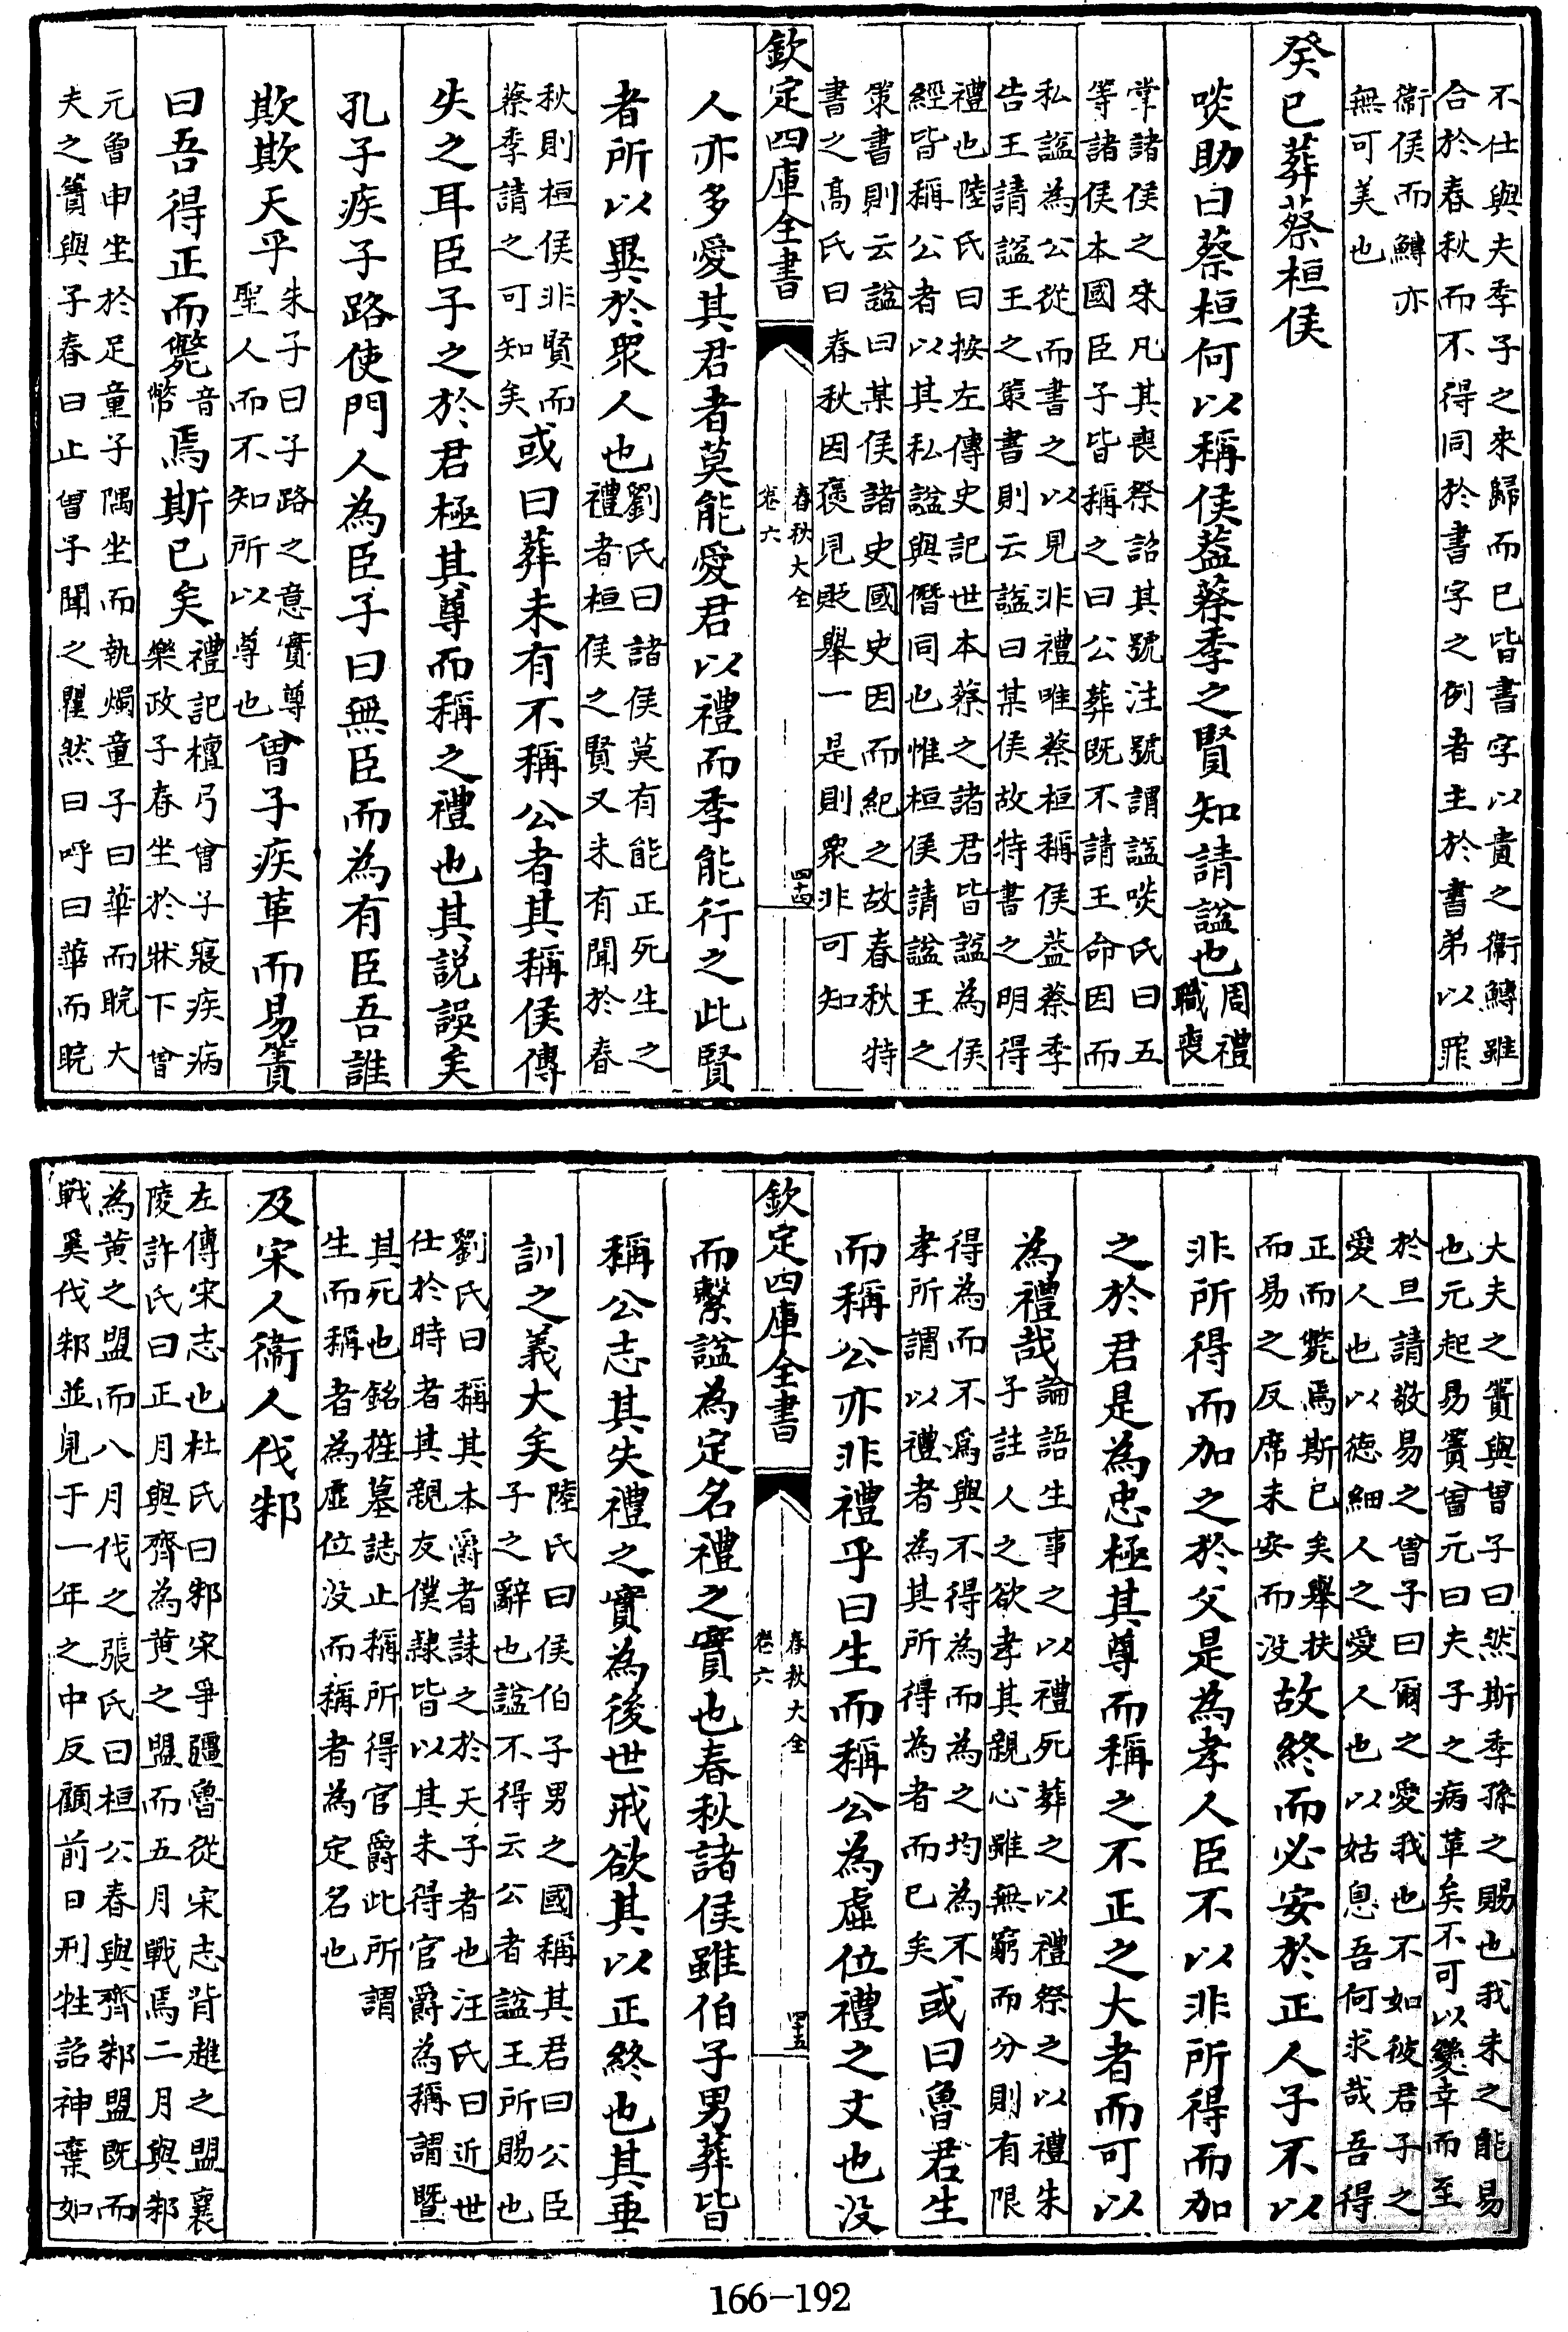 不仕與夫季子之來歸而已皆書字以貴之衛鱄雖
合於春秋而不得同於書字之例者主於書弟以罪
衛侯而鱄亦
無可美也
癸巳葬蔡桓侯
啖助曰蔡桓何以稱侯葢蔡季之賢知請諡也周禮
職喪
掌諸侯之喪凡其喪祭詔其號注號謂諡啖氏曰五
等諸侯本國臣子皆稱之曰公葬既不請王命因而
私諡為公從而書之以見非禮唯蔡桓稱侯葢蔡季
告王請諡王之策書則云諡曰某侯故特書之明得
禮也陸氏曰按左傳史記世本蔡之諸君皆諡為侯
經皆稱公者以其私諡與僭同也惟桓侯請諡王之
策書則云諡曰某侯諸史國史因而紀之故春秋特
書之髙氏曰春秋因褒見貶舉一是則衆非可知
欽定四庫全書
春秋大全
卷六
四十四
人亦多愛其君者莫能愛君以禮而季能行之此賢
者所以異於衆人也劉氏曰諸侯莫有能正死生之
禮者桓侯之賢又未有聞於春
秋則桓侯非賢而
蔡季請之可知矣或曰葬未有不稱公者其稱侯傳
失之耳臣子之於君極其尊而稱之禮也其説誤矣
孔子疾子路使門人為臣子曰無臣而為有臣吾誰
欺欺天乎朱子曰子路之意實尊
聖人而不知所以尊也曾子疾革而易簀
曰吾得正而斃音
幣焉斯已矣禮記檀弓曾子寢疾病
樂政子春坐於牀下曾
元曾申坐於足童子隅坐而執燭童子曰華而睆大
夫之簀與子春曰止曾子聞之瞿然曰呼曰華而睆
大夫之簀與曾子曰然斯季孫之賜也我未之能易
也元起易簀曾元曰夫子之病革矣不可以變幸而至
於旦請敬易之曾子曰爾之愛我也不如彼君子之
愛人也以徳細人之愛人也以姑息吾何求哉吾得
正而斃焉斯已矣舉扶
而易之反席未安而没故終而必安於正人子不以
非所得而加之於父是為孝人臣不以非所得而加
之於君是為忠極其尊而稱之不正之大者而可以
為禮哉論語生事之以禮死葬之以禮祭之以禮朱
子註人之欲孝其親心雖無窮而分則有限
得為而不爲與不得為而為之均為不
孝所謂以禮者為其所得為者而已矣或曰魯君生
而稱公亦非禮乎曰生而稱公為虛位禮之文也没
欽定四庫全書
春秋大全
卷六
四十五
而繫諡為定名禮之實也春秋諸侯雖伯子男葬皆
稱公志其失禮之實為後世戒欲其以正終也其垂
訓之義大矣陸氏曰侯伯子男之國稱其君曰公臣
子之辭也諡不得云公者諡王所賜也
劉氏曰稱其本爵者誄之於天子者也汪氏曰近世
仕於時者其親友僕隸皆以其未得官爵為稱謂暨
其死也銘旌墓誌止稱所得官爵此所謂
生而稱者為虛位没而稱者為定名也
及宋人衛人伐邾
左傳宋志也杜氏曰邾宋爭疆魯從宋志背趡之盟襄
陵許氏曰正月與齊為黄之盟而五月戰焉二月與邾
為黄之盟而八月伐之張氏曰桓公春與齊邾盟既而
戰奚伐邾並見于一年之中反顧前日刑牲詔神棄如
166-192